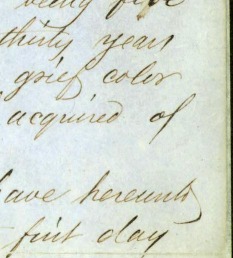 being five
thirty years
grief color
acquired of
have hereunto
first day